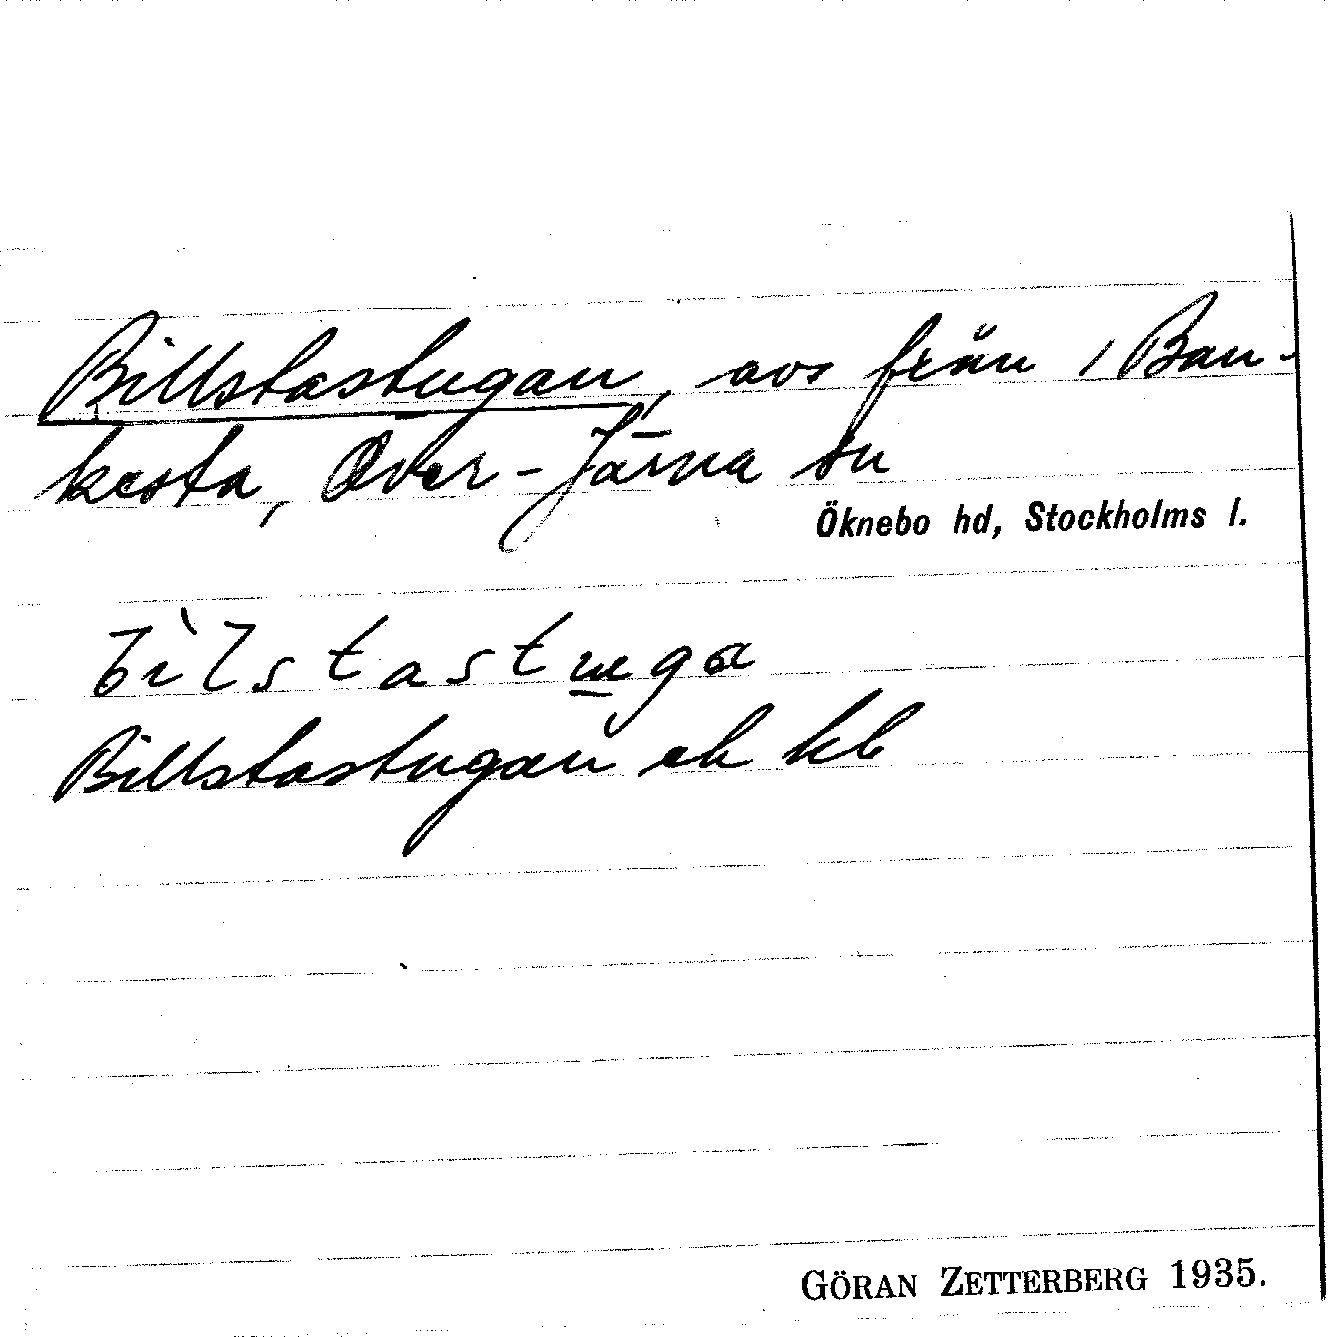 Billstastugan, avs från 1 Ban-
kesta, Över-Järna sn
Öknebo hd, Stockholms l.
bìlstastuga
Billstastugan ek kb
GÖRAN ZETTERBERG 1935.